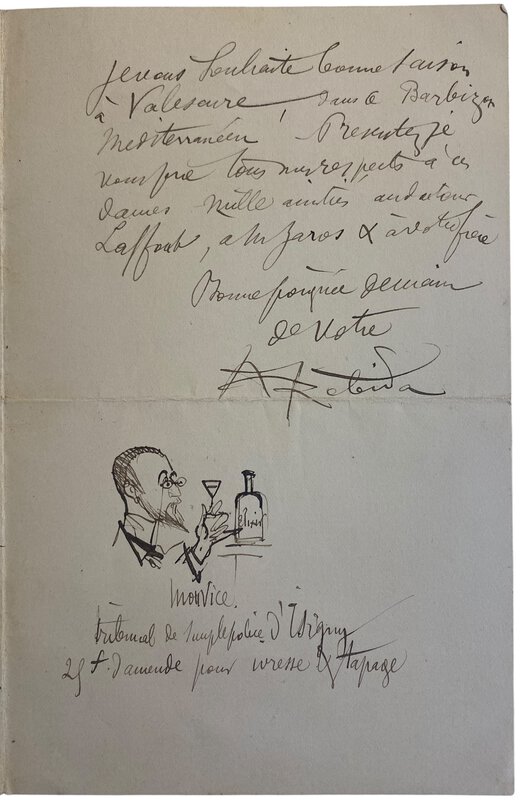 je vous souhaite bonne saison
à Valescure, dans ce Barbizon
Méditerranéen Presentez je
vous prie tous mes respects à ces
dames Mille amitiés au docteur
Laffont, a M Jaros & à votre frère
Bonne poignée de main
de votre
A Robida
Elixir
mon Vice.
tribunal de simple police d'Isigny
25 f. d'amende pour ivresse & tapage